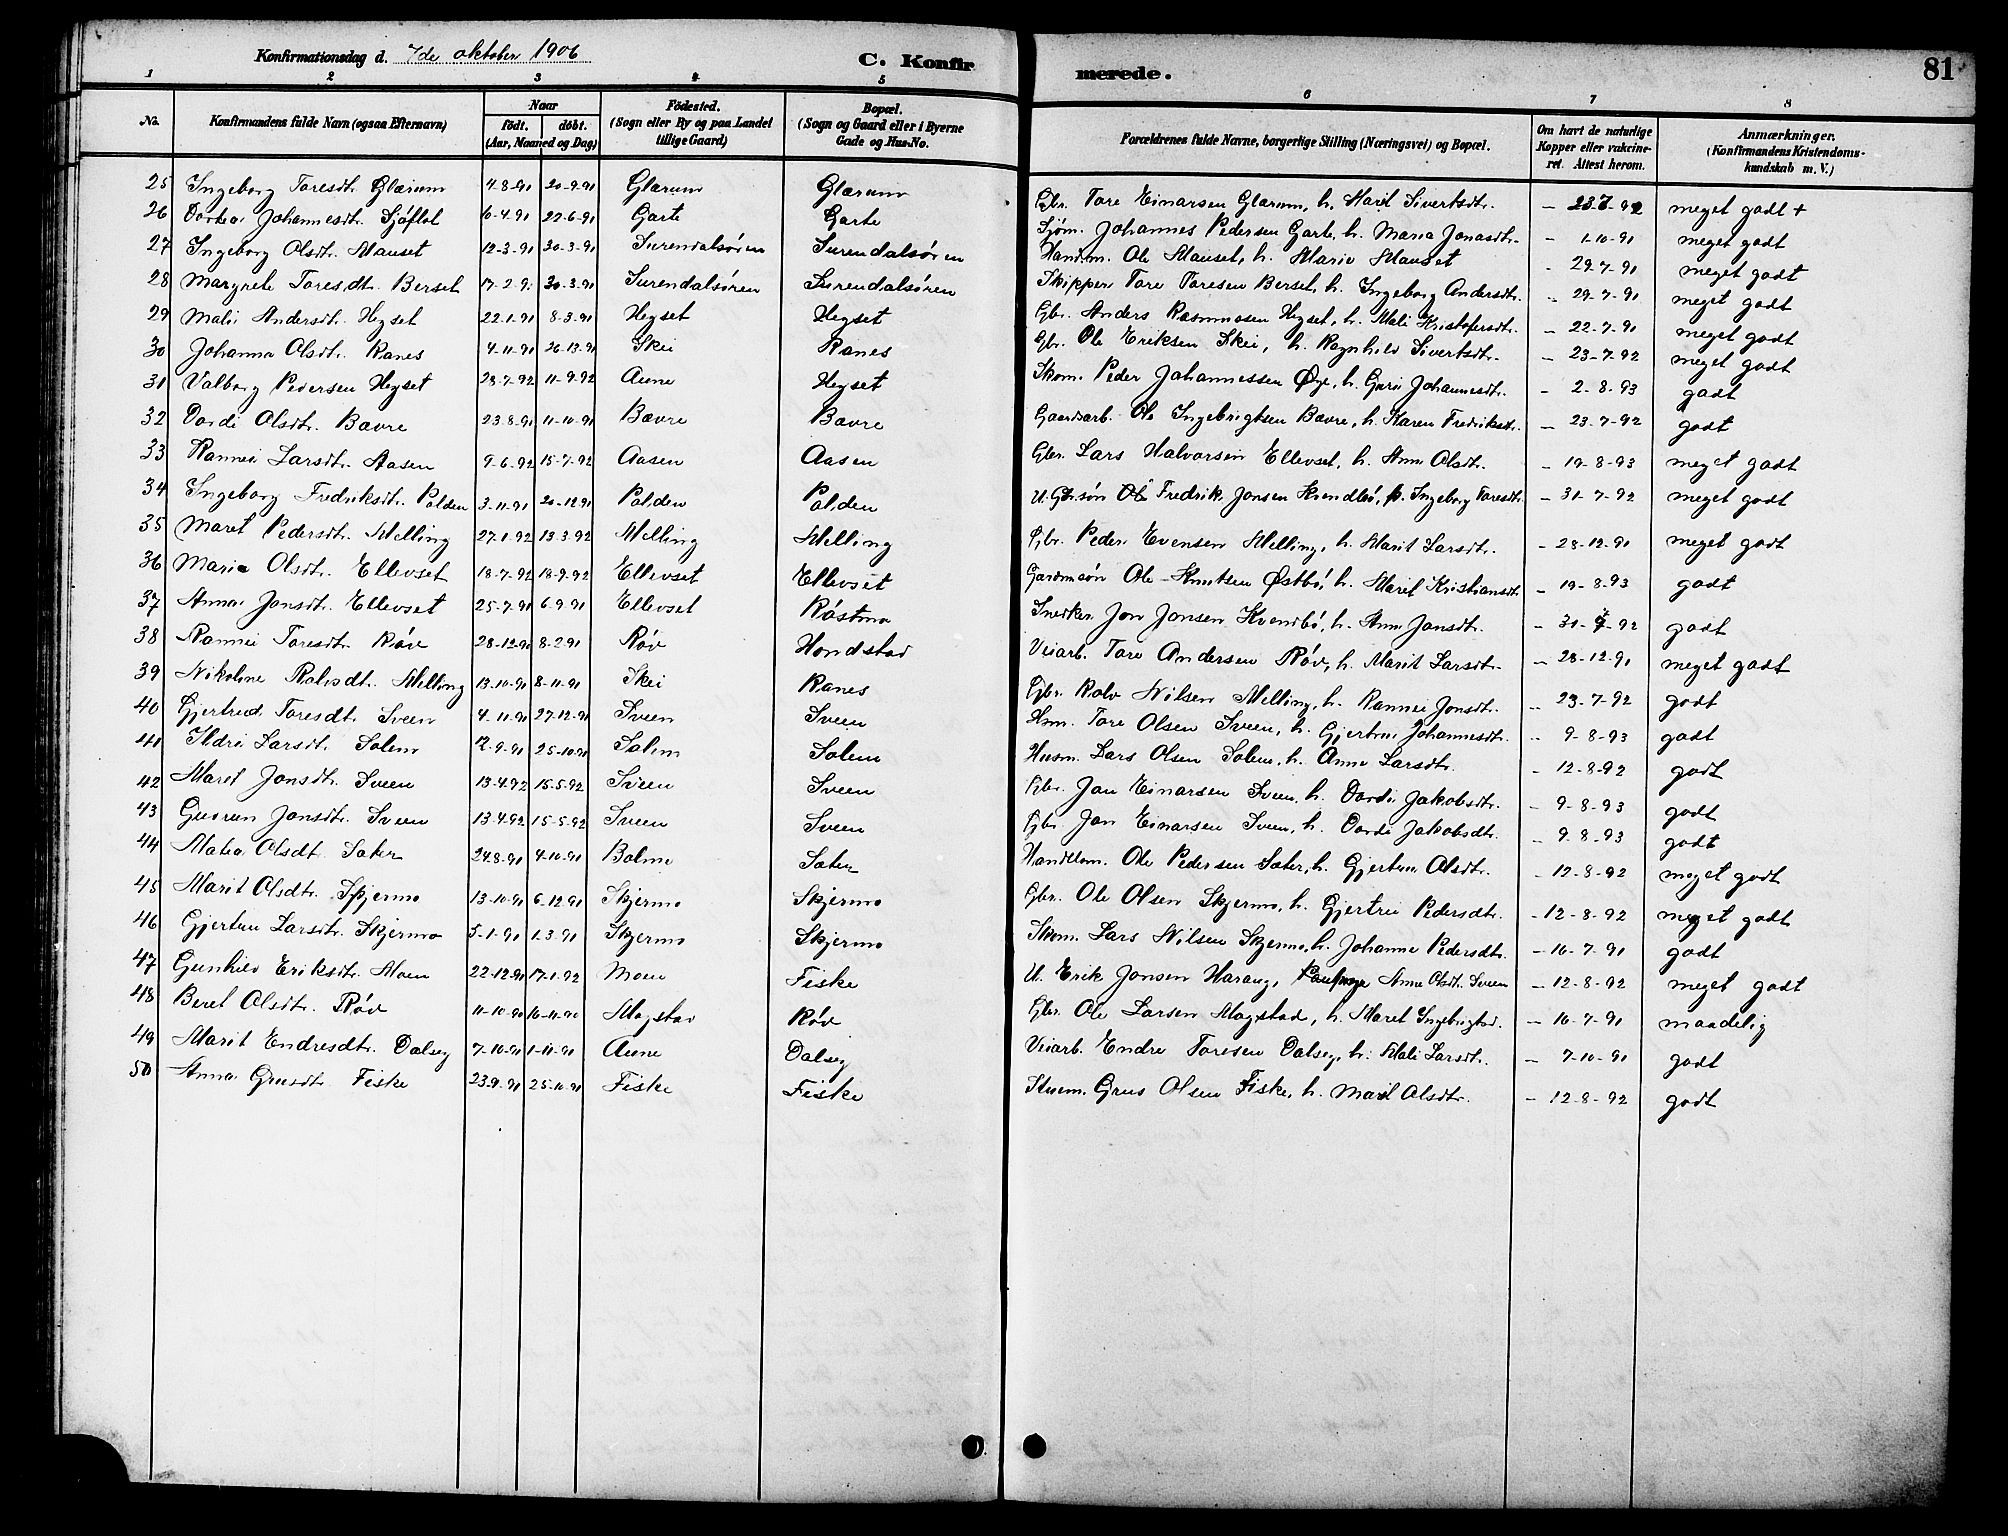 Konfirmationsdag d. 7de oktober 1906 C. Konfirmerede. 81
1 2 3 4 5 6 7 8
No. Konfirmandens fulde Navn (ogsaa Efternavn) Naar födt. döbt. (Aar, Maaned og Dag) Födested. (Sogn eller By og paa Landet tillige Gaard) Bopæl. (Sogn og Gaard eller i Byerne Gade og Hus-No. Forældrenes fulde Navne, borgerlige Stilling (Næringsvei) og Bopæl. Om havt de naturlige Kopper eller vakcineret. Attest herom. Anmærkninger. (Konfirmandens Kristendomskundskab m. V.)
25 Ingeborg Toresdtr. Glærum 4-8-91 20-9-91 Glærum Glærum Gbr. Tore Einarsen Glærum, h. Marit Sivertsdtr. - 23-7-92 meget godt +
26 Dortea Johannesdtr. Sjøflot 6-4-91 22-6-91 Garte Garte Sjöm. Johannes Pedersen Garte, h. Maria Jonasdtr. - 1-10-91 meget godt
27 Ingeborg Olsdtr. Mauset 12-3-91 30-3-91 Surendalsøren Surendalsøren Handm. Ole Mauset, h. Marie Mauset - 29-7-91 meget godt
28 Margrete Toresdt. Berset 17-2-91 30-3-91 Surendalsøren Surendalsøren Skipper Tore Toresen Berset, h. Ingeborg Andersdtr. - 29-7-91 meget godt
29 Mali Andersdt. Hegset 22-1-91 8-3-91 Hegset Hegset Gbr. Anders Rasmussen Hegset, h. Mali Kristofersdtr. - 22-7-91 meget godt
30 Johanna Olsdt. Ranes 4-11-91 26-13-91 Skei Ranes Gbr. Ole Eriksen Skei, h. Ragnhild Sivertsdtr. - 23-7-92 meget godt
31 Valborg Pedersen Hegset 28-7-92 11-9-92 Aune Hegset Skom. Peder Johannessen Øye, h. Guri Johannesdtr. - 2-8-93 godt
32 Dordi Olsdtr. Bævre 23-8-91 11-10-91 Bævre Bævre Gaardsarb. Ole Ingebrigtsen Bævre, h. Karen Fredriksdtr. - 23-7-92 godt
33 Rannei Larsdtr. Aasen 9-6-92 15-7-92 Aasen Aasen Gbr. Lars Halvorsen Ellevset, h. Ane Olsdtr. - 19-8-93 meget godt
34 Ingeborg Fredriksdt. Polden 3-11-91 20-12-91 Polden Polden U. Gbr.søn Fredrik Jonsen Kvendbö, p. Ingeborg Toresdtr. - 31-7-92 meget godt
35 Maret Pedersdtr. Melling 27-1-92 13-3-92 Melling Melling Gbr. Peder Evensen Melling, h. Marit Larsdtr. - 28-12-91 meget godt
36 Maria Olsdt. Ellevset 18-7-92 18-9-92 Ellevset Ellevset Gardmsön Ole Knutsen Østbö, h. Marit Kristiansdt - 19-8-93 godt
37 Anna Jonsdt. Ellevset 25-7-91 6-9-91 Ellevset Røstmo Snedker Jon Jonsen Kvendbö, h. Ane Jonsdtr. - 31-7-92 godt
38 Rannei Toresdt. Røv 28-12-90 8-2-91 Røv Hondstad Veiarb. Tore Andersen Røv, h. Marit Larsdt. - 28-12-91 meget godt
39 Nikoline Rolvsdt. Melling 13-10-91 8-11-91 Skei Ranes Gbr. Rolv Nilsen Melling, h. Rannei Jonsdt. - 23-7-92 godt
40 Gjertrud Toresdt. Sveen 4-11-91 27-12-91 Sveen Sveen Hsm. Tore Olsen Sveen, h. Gjertru Johannesdt. - 9-8-93 godt
41 Ildri Larsdt. Solem 12-9-91 25-10-91 Solem Solem Husm. Lars Olsen Solem, h. Anne Larsdtr. - 12-8-92 godt
42 Marit Jonsdt. Sveen 13-4-92 15-5-92 Sveen Sveen Gbr. Jon Einarsen Sveen, h. Dordi Jakobsdtr. - 9-8-93 godt
43 Gudrun Jonsdt. Sveen 13-4-92 15-5-92 Sveen Sveen Gbr Jon Einarsen Sveen, h. Dordi Jakobsdtr. - 9-8-93 godt
44 Matea Olsdt. Sæter 24-8-91 4-10-91 Bolme Sæter Handelsm. Ole Pedersen Sæter, h. Gjertru Olsdt. - 12-8-92 meget godt
45 Marit Olsdtr. Skjermo 13-10-91 6-12-91 Skjermo Skjermo Gbr. Ole Olsen Skjermo, h. Gjertru Pedersdtr. - 12-8-92 meget godt
46 Gjertru Larsdtr. Skjermo 5-1-91 1-3-91 Skjermo Skjermo Skom. Lars Nilsen Skjermo, h. Johanne Pedersdtr. - 16-7-91 godt
47 Gunhild Eriksdtr. Moen 22-12-91 17-1-92 Moen Fiske U. Erik Jonsen Harang, Anne Olsdt. Sveen - 12-8-92 meget godt
48 Beret Olsdtr. Røv 11-10-90 16-11-90 Mogstad Røv Gbr. Ole Larsen Mogstad, h. Maret Ingebrigtsd. - 16-7-91 maadelig
49 Marit Endresdtr. Dalseg 7-10-91 1-11-91 Aune Dalseg Veiarb. Endre Toresen Dalseg, h. Mali Larsdtr. - 7-10-91 godt
50 Anna Grusdt. Fiske 23-9-91 25-10-91 Fiske Fiske Gruus Olsen Fiske, h. Marit Olsdtr. - 12-8-92 godt